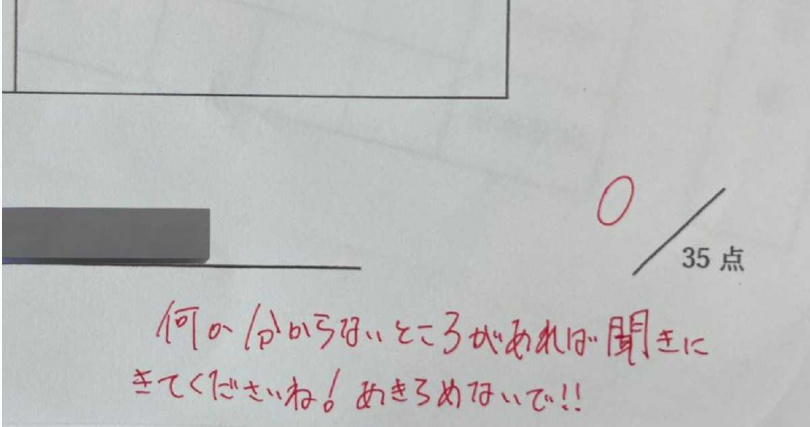 0
35 点
何か分からないところがあれば聞きに
きてくださいね!あきらめないで!!